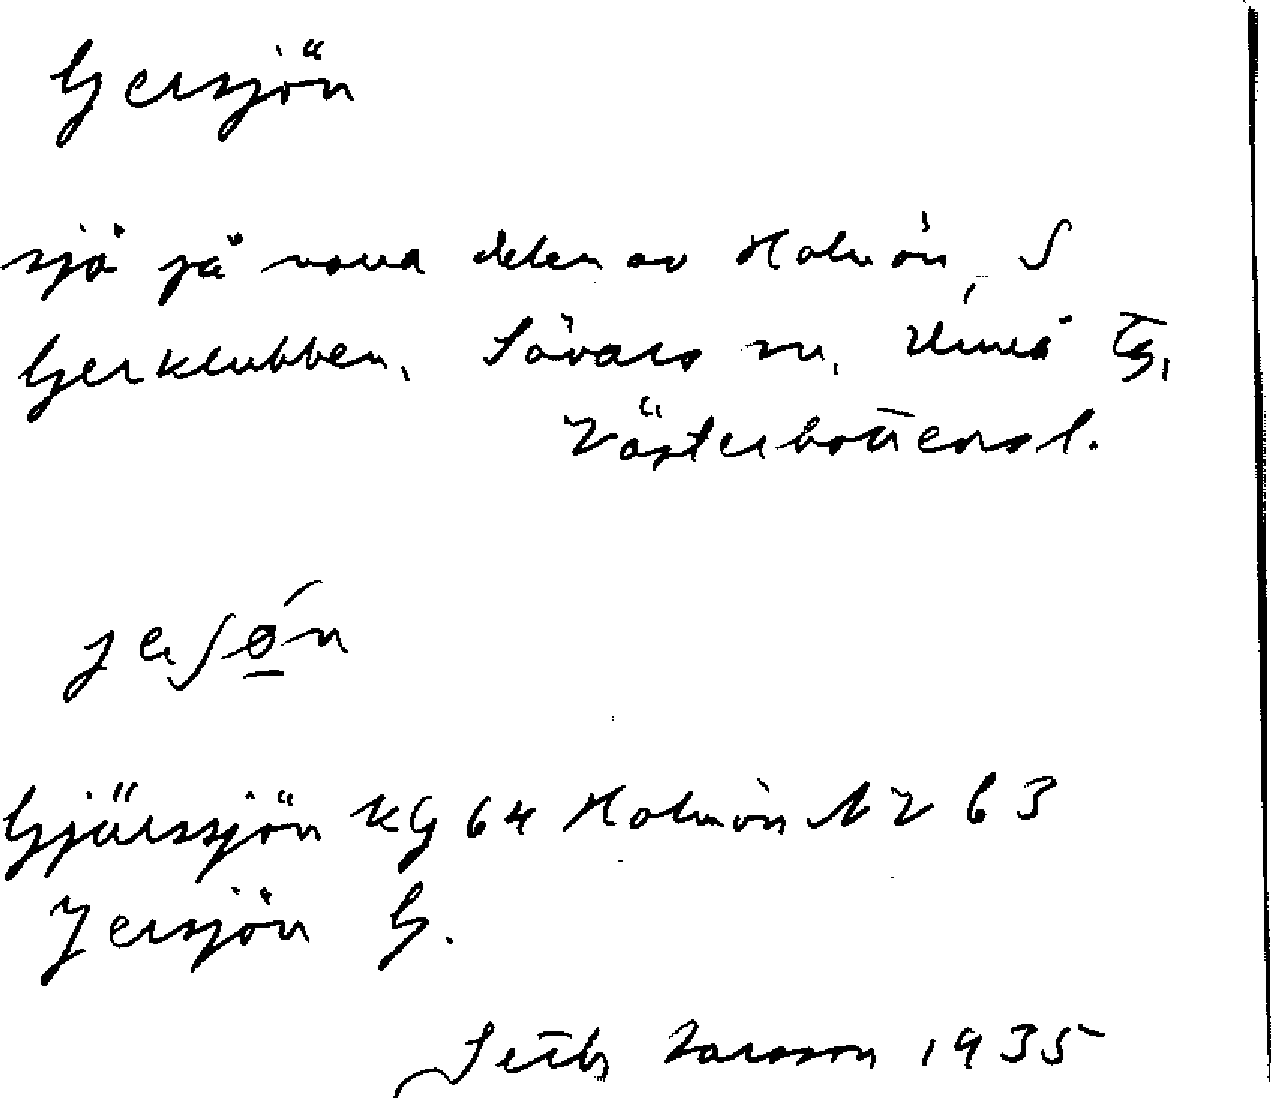 Gersjön
sjö på norra delen av Holmön, S
Gerklubben, Sävars sn, Umeå tg,
Västerbottens l.
jeʃǿ̲n
Gjärssjön KG 64 Holmön NV 63
Jersjön G.
Seth Larsson 1935